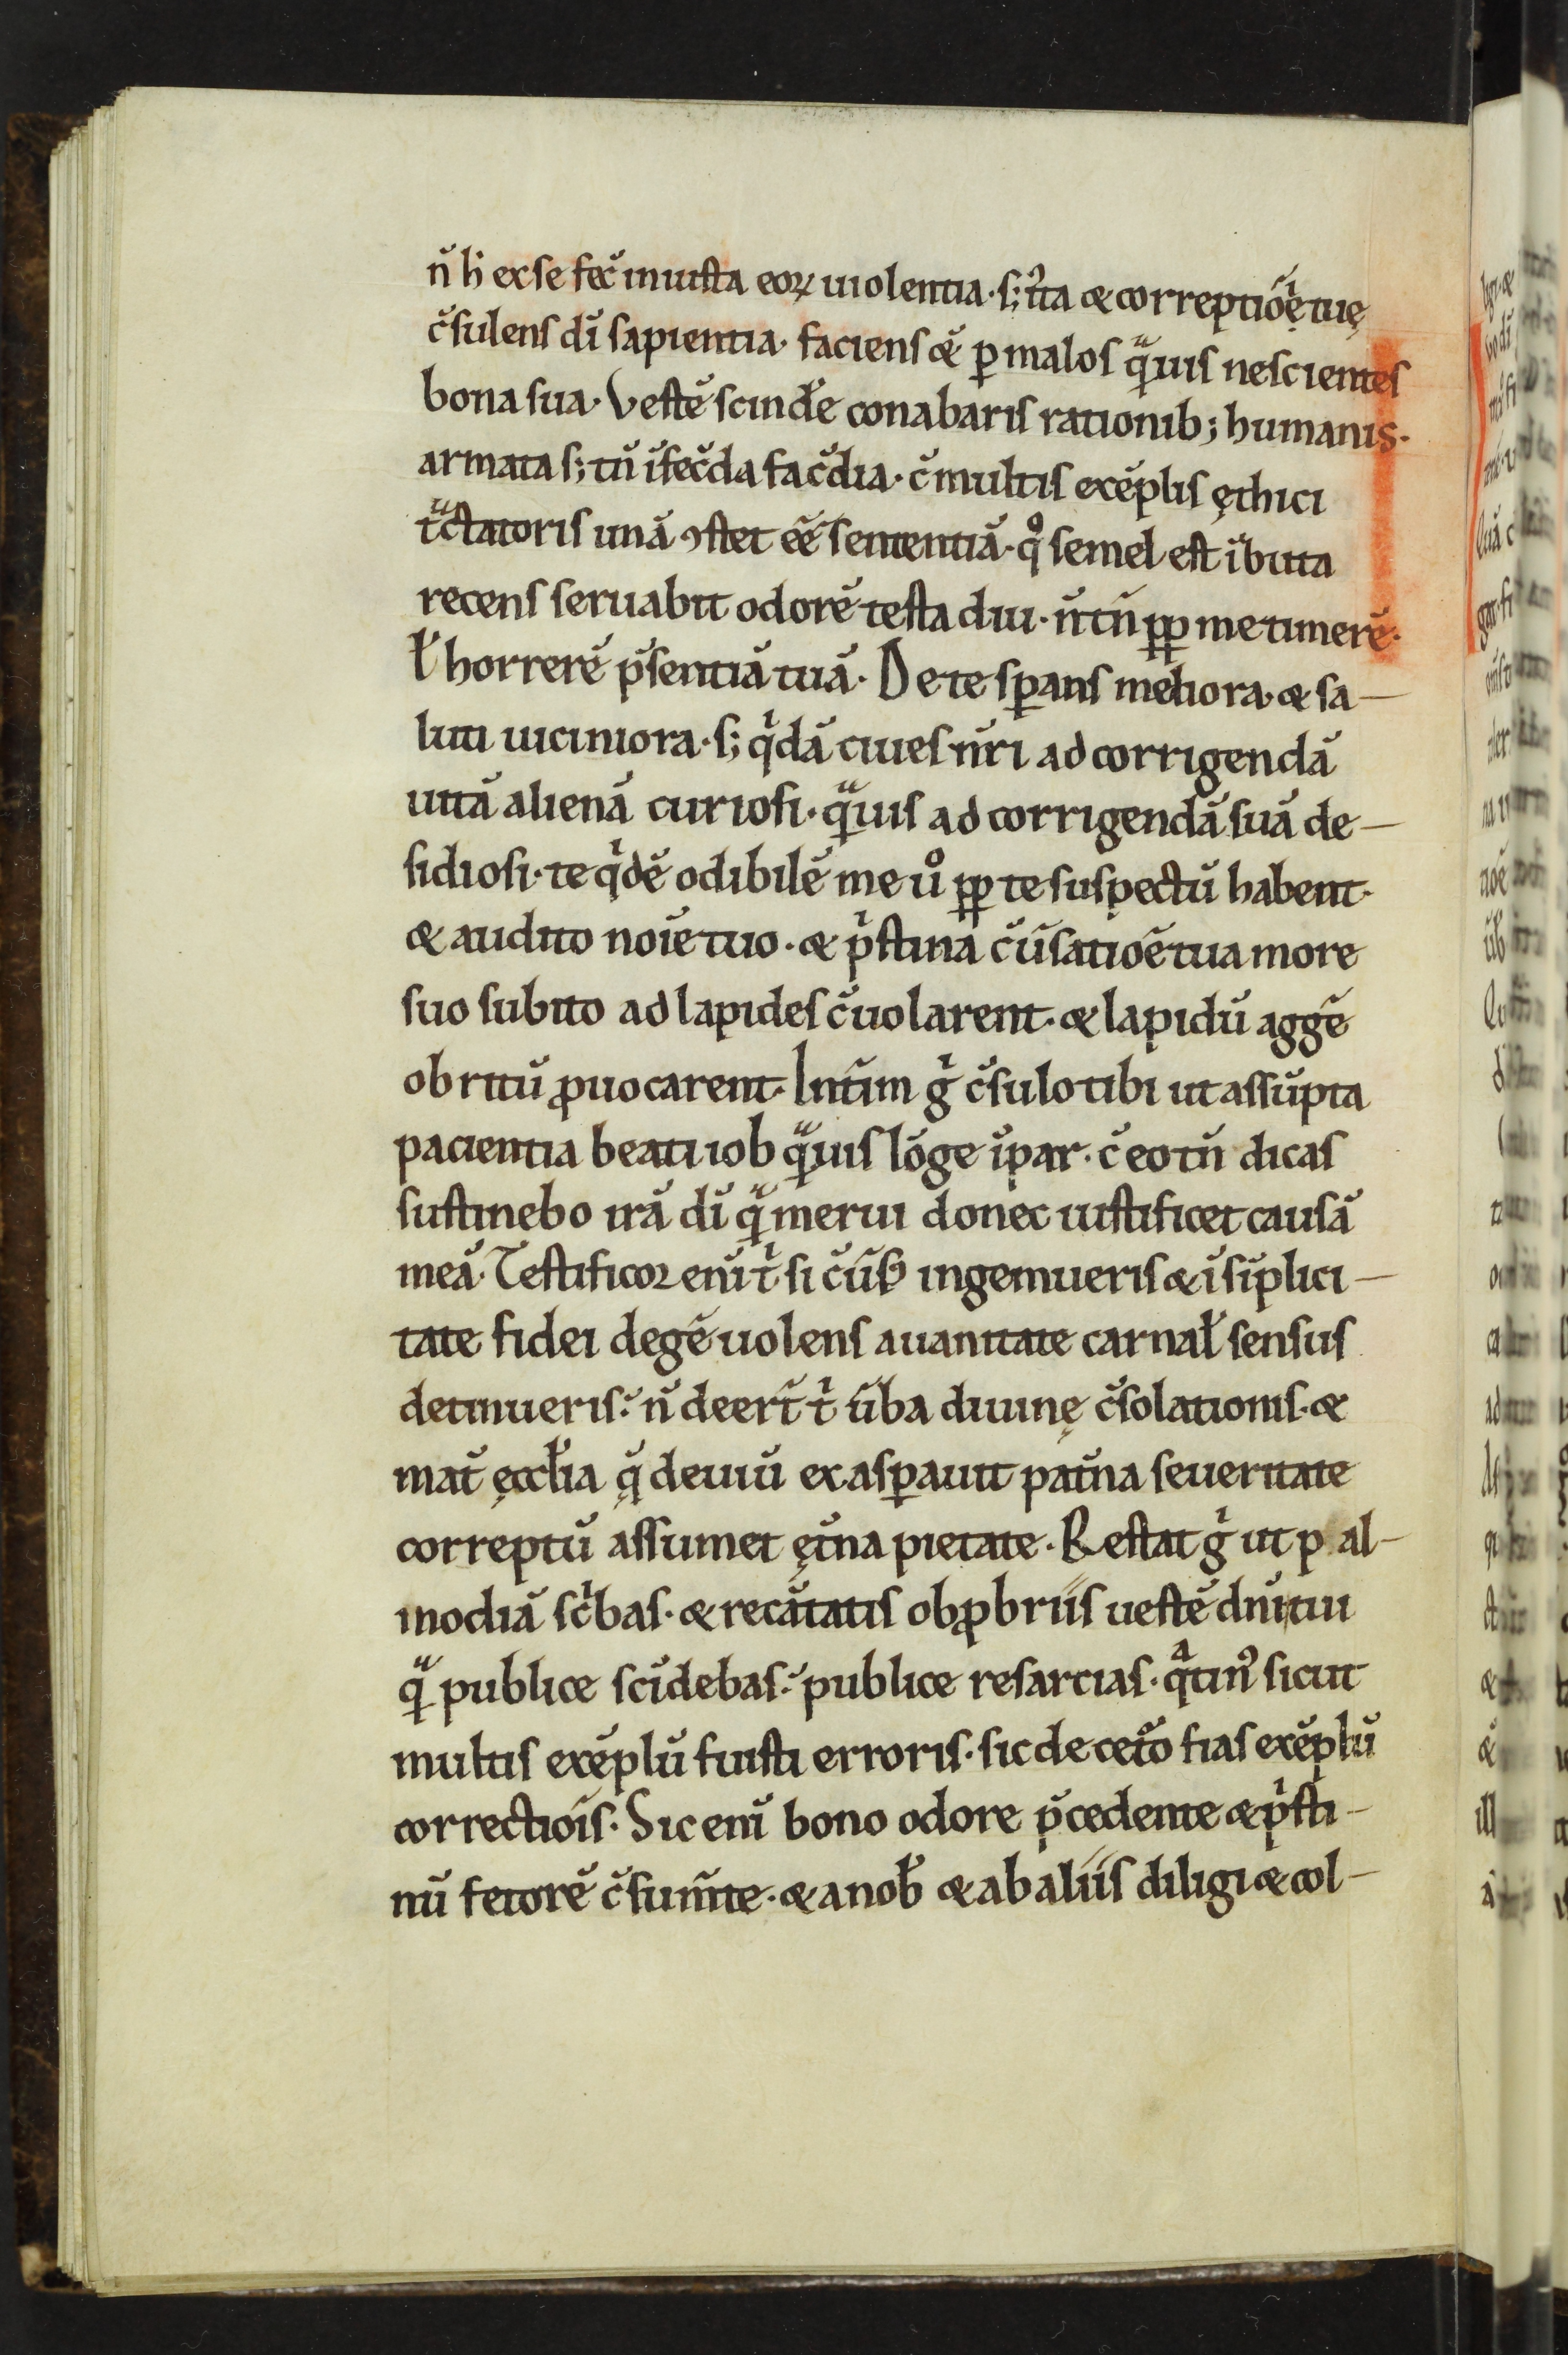 n̄ h̄ ex se fec̄ iniusta eoꝝ uiolentia· s; uͥta & correptiōi ę tuę
c̄sulens dī sapientia· faciens &̄ ꝑ malos qͣuis nescientes
bona sua· Vestē scindēe conabaris rationib; humanis·
armata s; tn̄ īfec̄da fac̄dia· c̄ multis exēplis ęthici
tͣctatoris unā ꝯstet eē sententiā· qͦ semel est ībuta
recens seruabit odorē testa diu· n̄ tn̄ ꝓꝑ me timerē·
ł horrerē p̄sentiā tuā· De te sꝑans meliora· & sa-
luti uiciniora· s; qͥdā ciues nr̄i ad corrigendā
uitā alienā curiosi· qͣuis ad corrigendā suā de-
sidiosi· te qͥdē odibilē me uͦ ꝓꝑ te suspectū habent·
& audito noīe tuo· & pͥstina c̄ūsatiōe tua more
suo subito ad lapides c̄uolarent· & lapidū aggē
obrutū ꝓuocarent· Intīm gͥ c̄sulo tibi ut assūpta
pacientia beati iob qͣuis lōge īpar· c̄ eo tn̄ dicas
sustinebo irā dī qͣ merui donec iustificet causā
meā· Testificor enī tͥ si c̄ūsꝰ ingemueris & ī sīplici-
tate fidei degē uolens a uanitate carnał sensus
detinueris: n̄ deer̄t tͥ ūba diuinę c̄solationis· &
mat̄ ęccłia q̄ deuiū exasꝑauit pat̄na seueritate
correptū assumet ęt̄na pietate· Restat gͥ ut p al-
modiā scͥbas· & recātatis obꝓbriis uestē dn̄i tui
qͣ publice scīdebas: publice resarcias· qͣtinꝰ sicut
multis exēplū fuisti erroris· sic de cet̄o fias exēplū
correctiōis· Sic enī bono odore p̄cedente & pͥsti-
nū fetorē c̄sum̄te· & a nob̄ & ab aliis diligi & col-